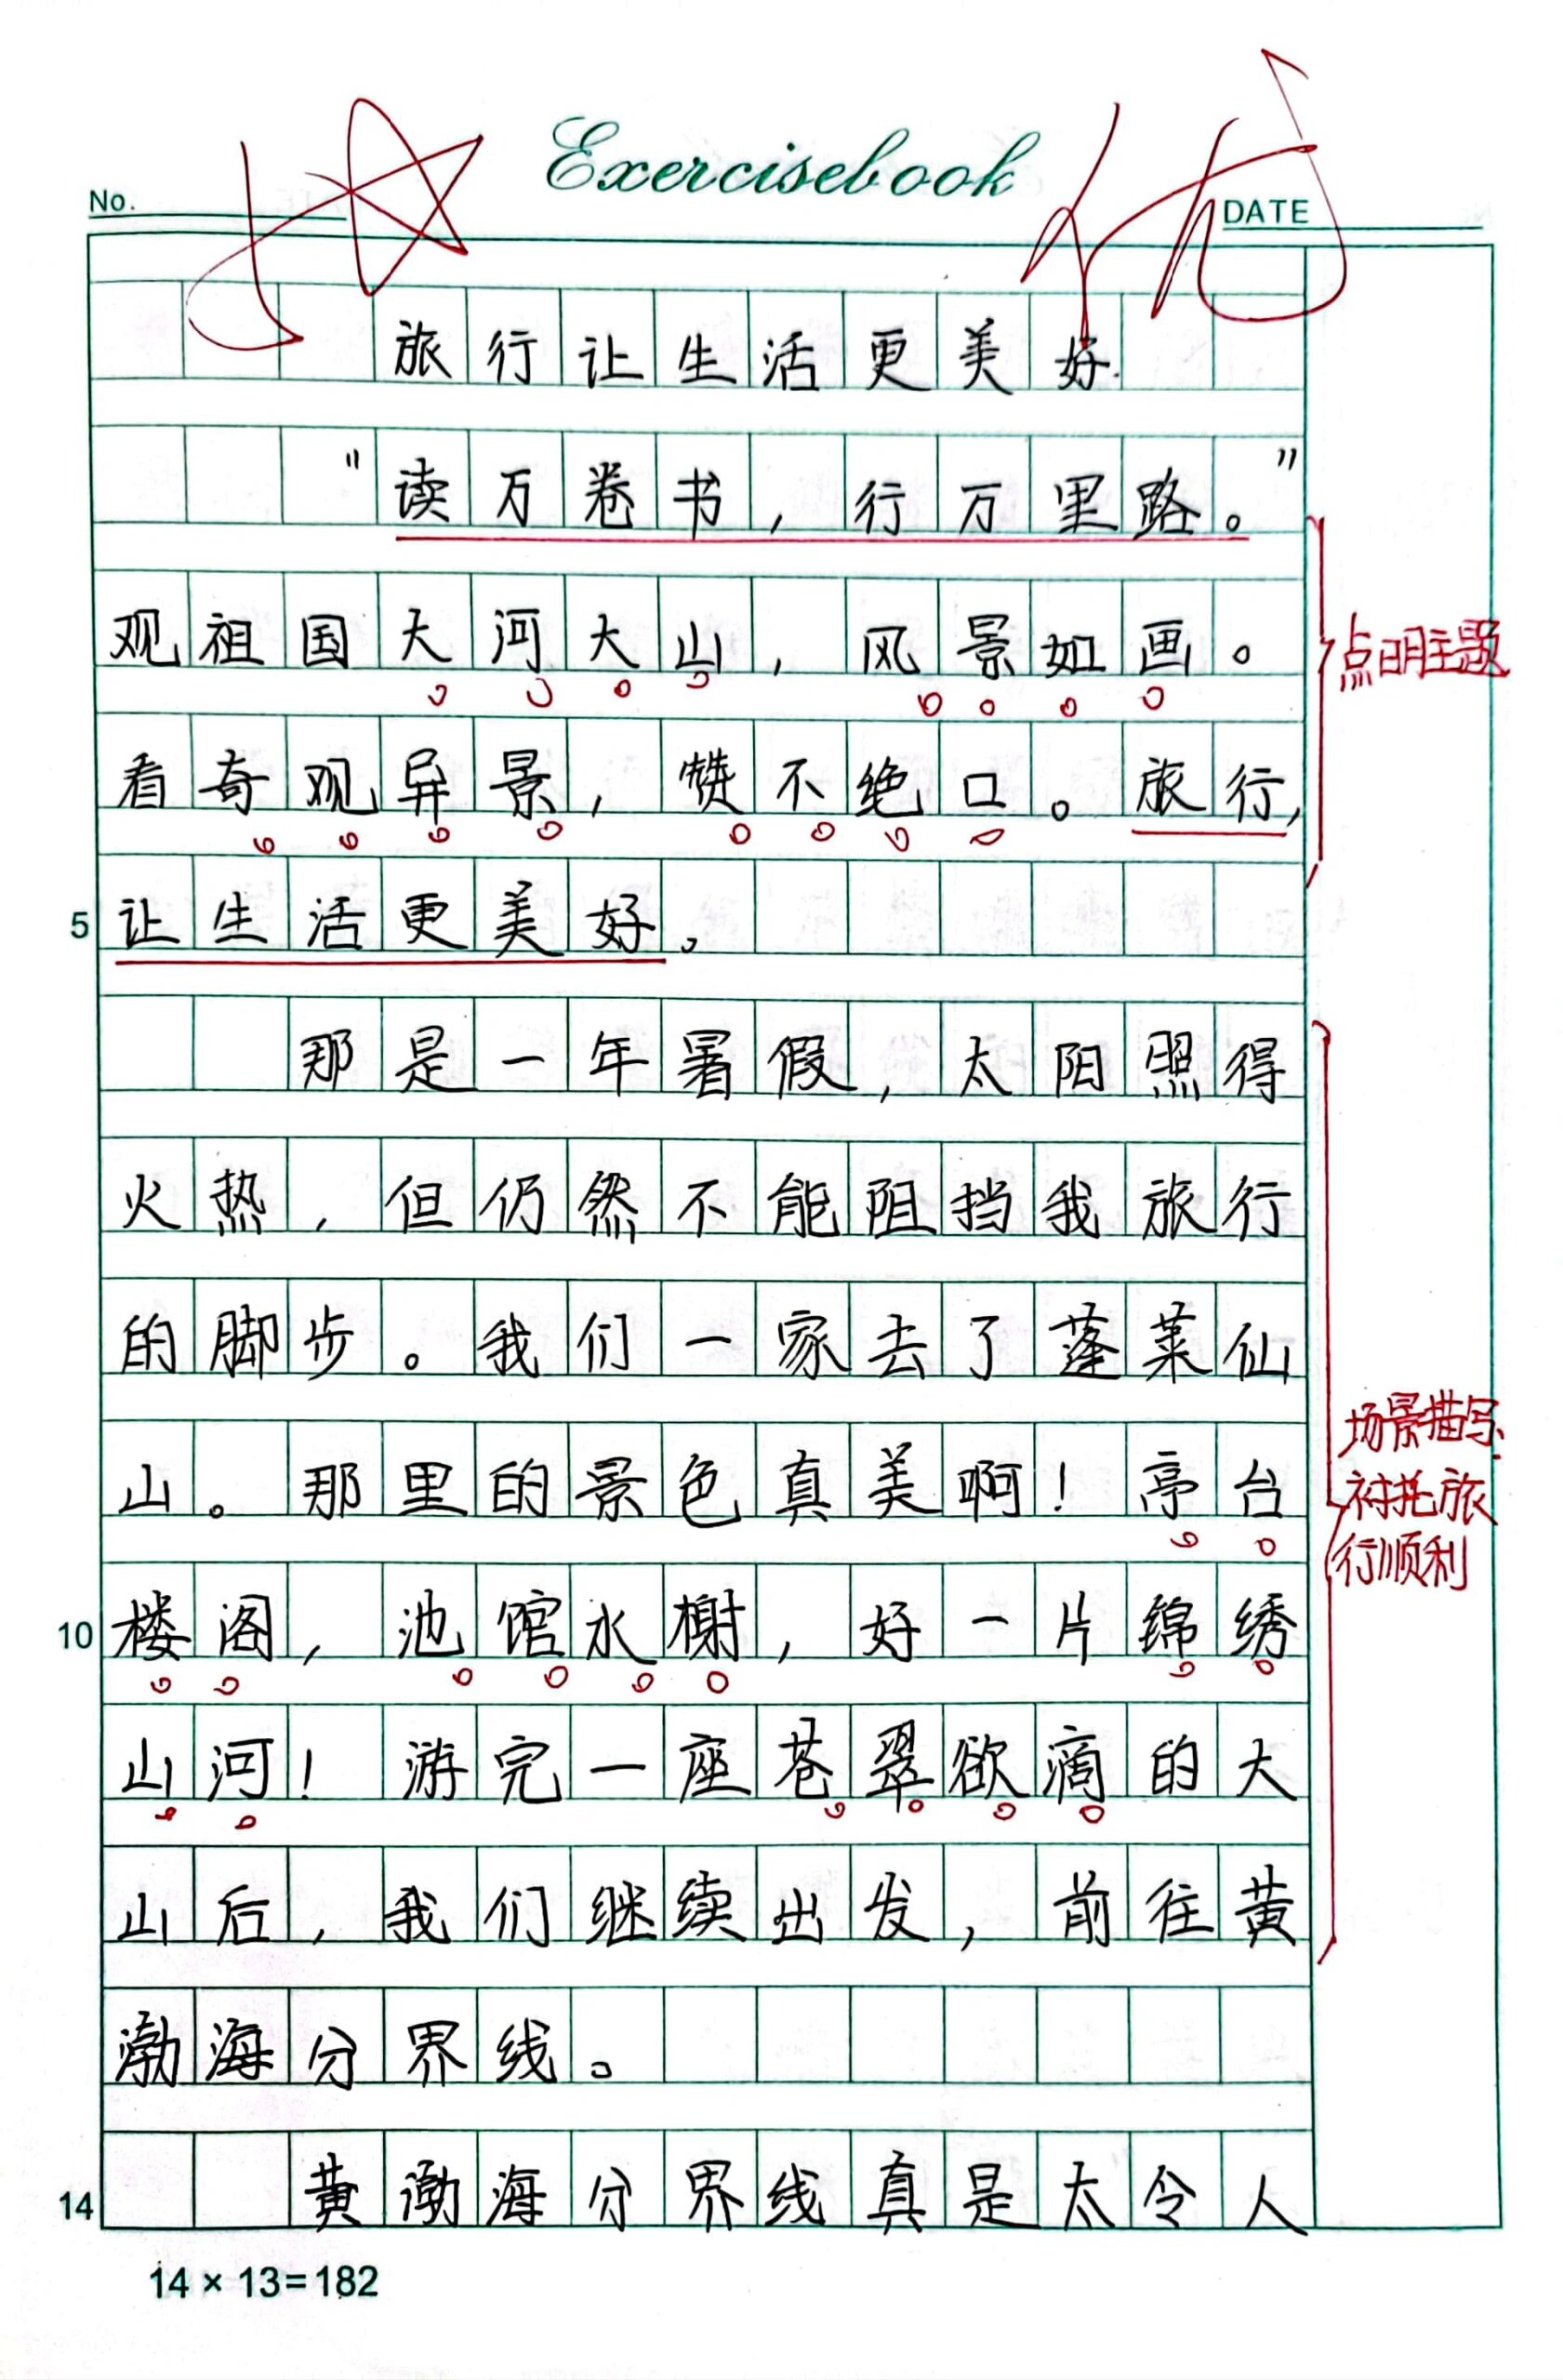 Exercisebook
No.
DATE
优
旅行让生活更美好
"读万卷书,行万里路。"
观祖国大河大山,风景如画。
点明主题
看奇观异景,赞不绝口。旅行,
5
让生活更美好。
那是一年暑假,太阳照得
火热,但仍然不能阻挡我旅行
的脚步。我们一家去了蓬莱仙
山。那里的景色真美啊!亭台
场景描写
衬托旅
行顺利
10
楼阁,池馆水榭,好一片绵绣
山河!游完一座苍翠欲滴的大
山后,我们继续出发,前往黄
渤海分界线。
14
黄渤海分界线真是太令人
14×13=182